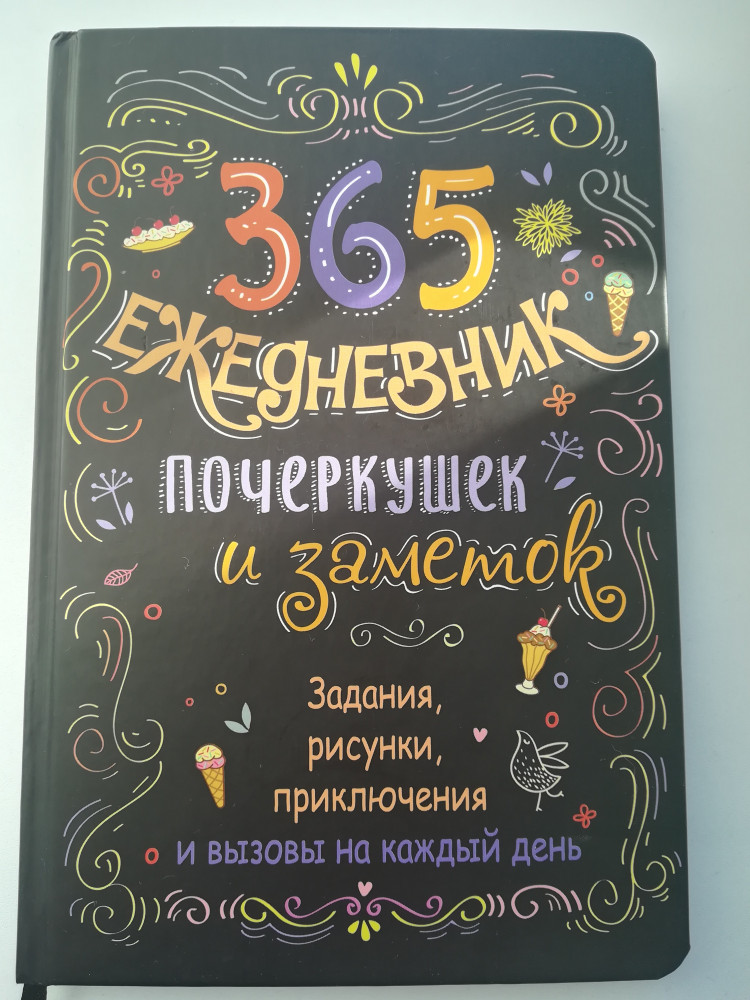 365
ЕЖЕДНЕВНИК
ПОЧЕРКУШЕК
и заметок
Задания,
рисунки,
приключения
и вызовы на каждый день